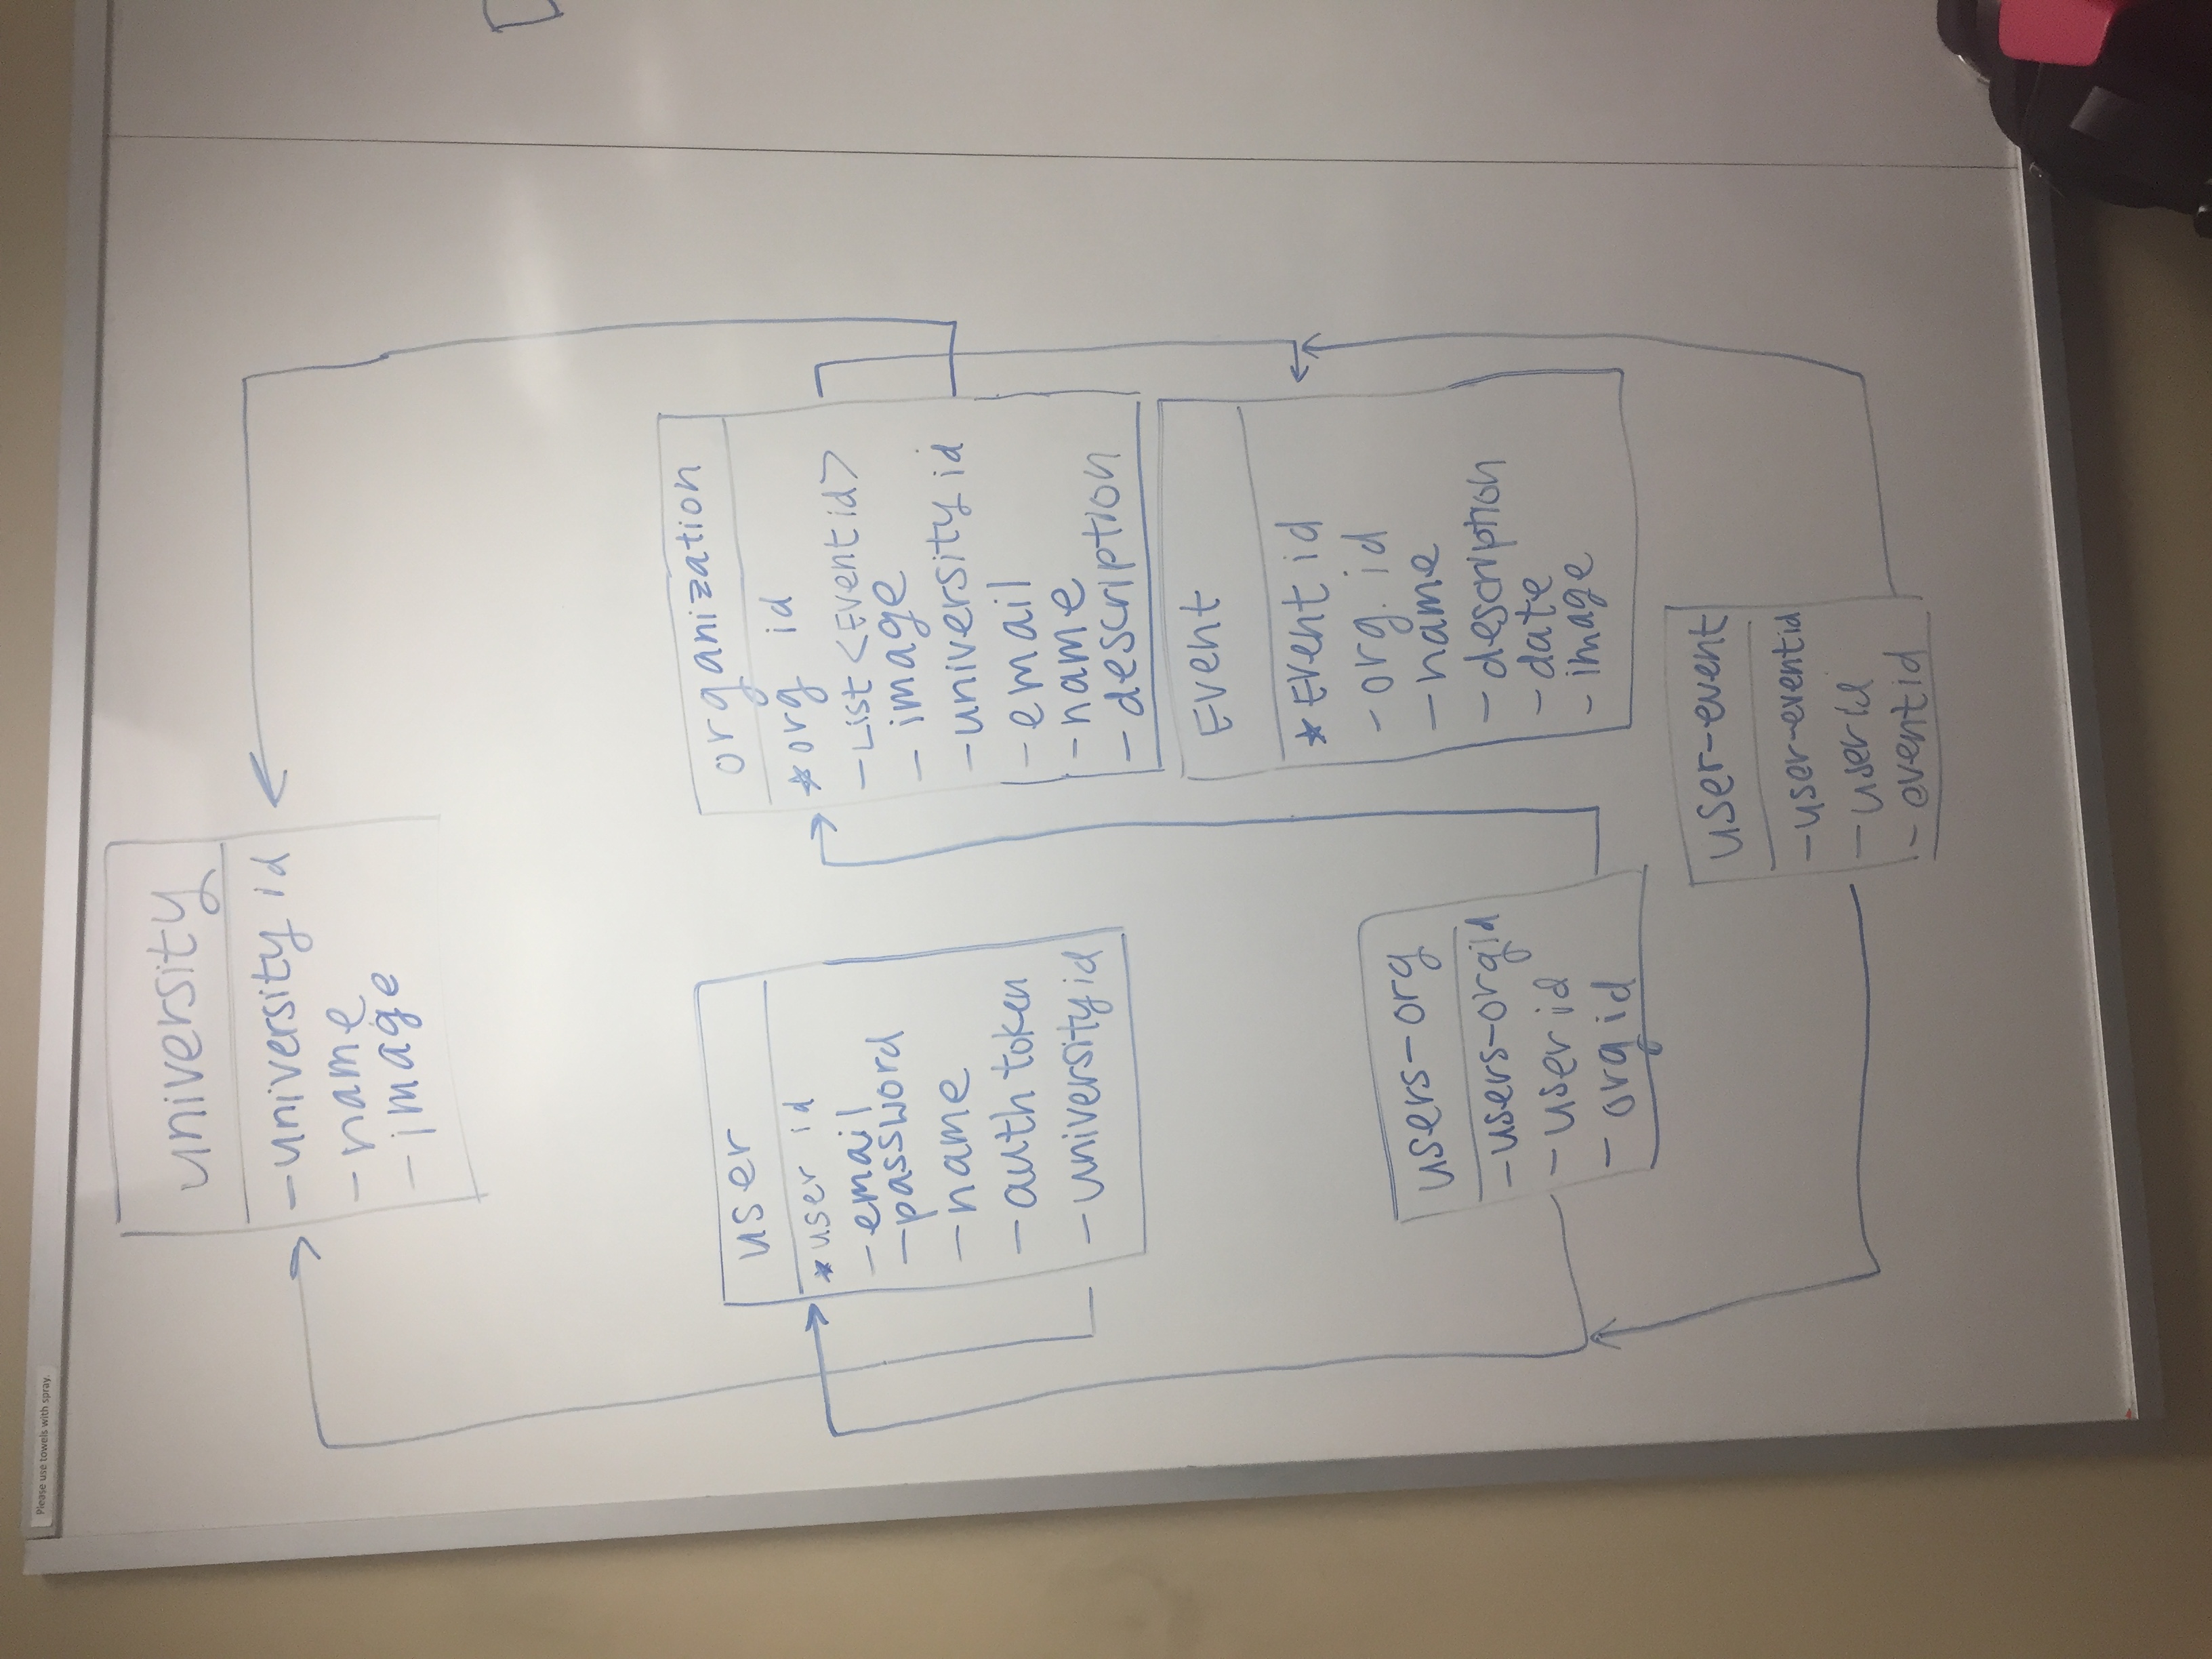 Please use towels with spray.
university
- university id
- name
- image
user
* user id
- email
- password
- name
- auth token
- university id
organization
* org id
- List <Event id>
- image
- university id
- email
- name
- description
Event
* Event id
- org. id
- name
- description
- date
- image
users-org
- users-orgid
- user id
- org id
user-event
- user-eventid
- user id
- event id